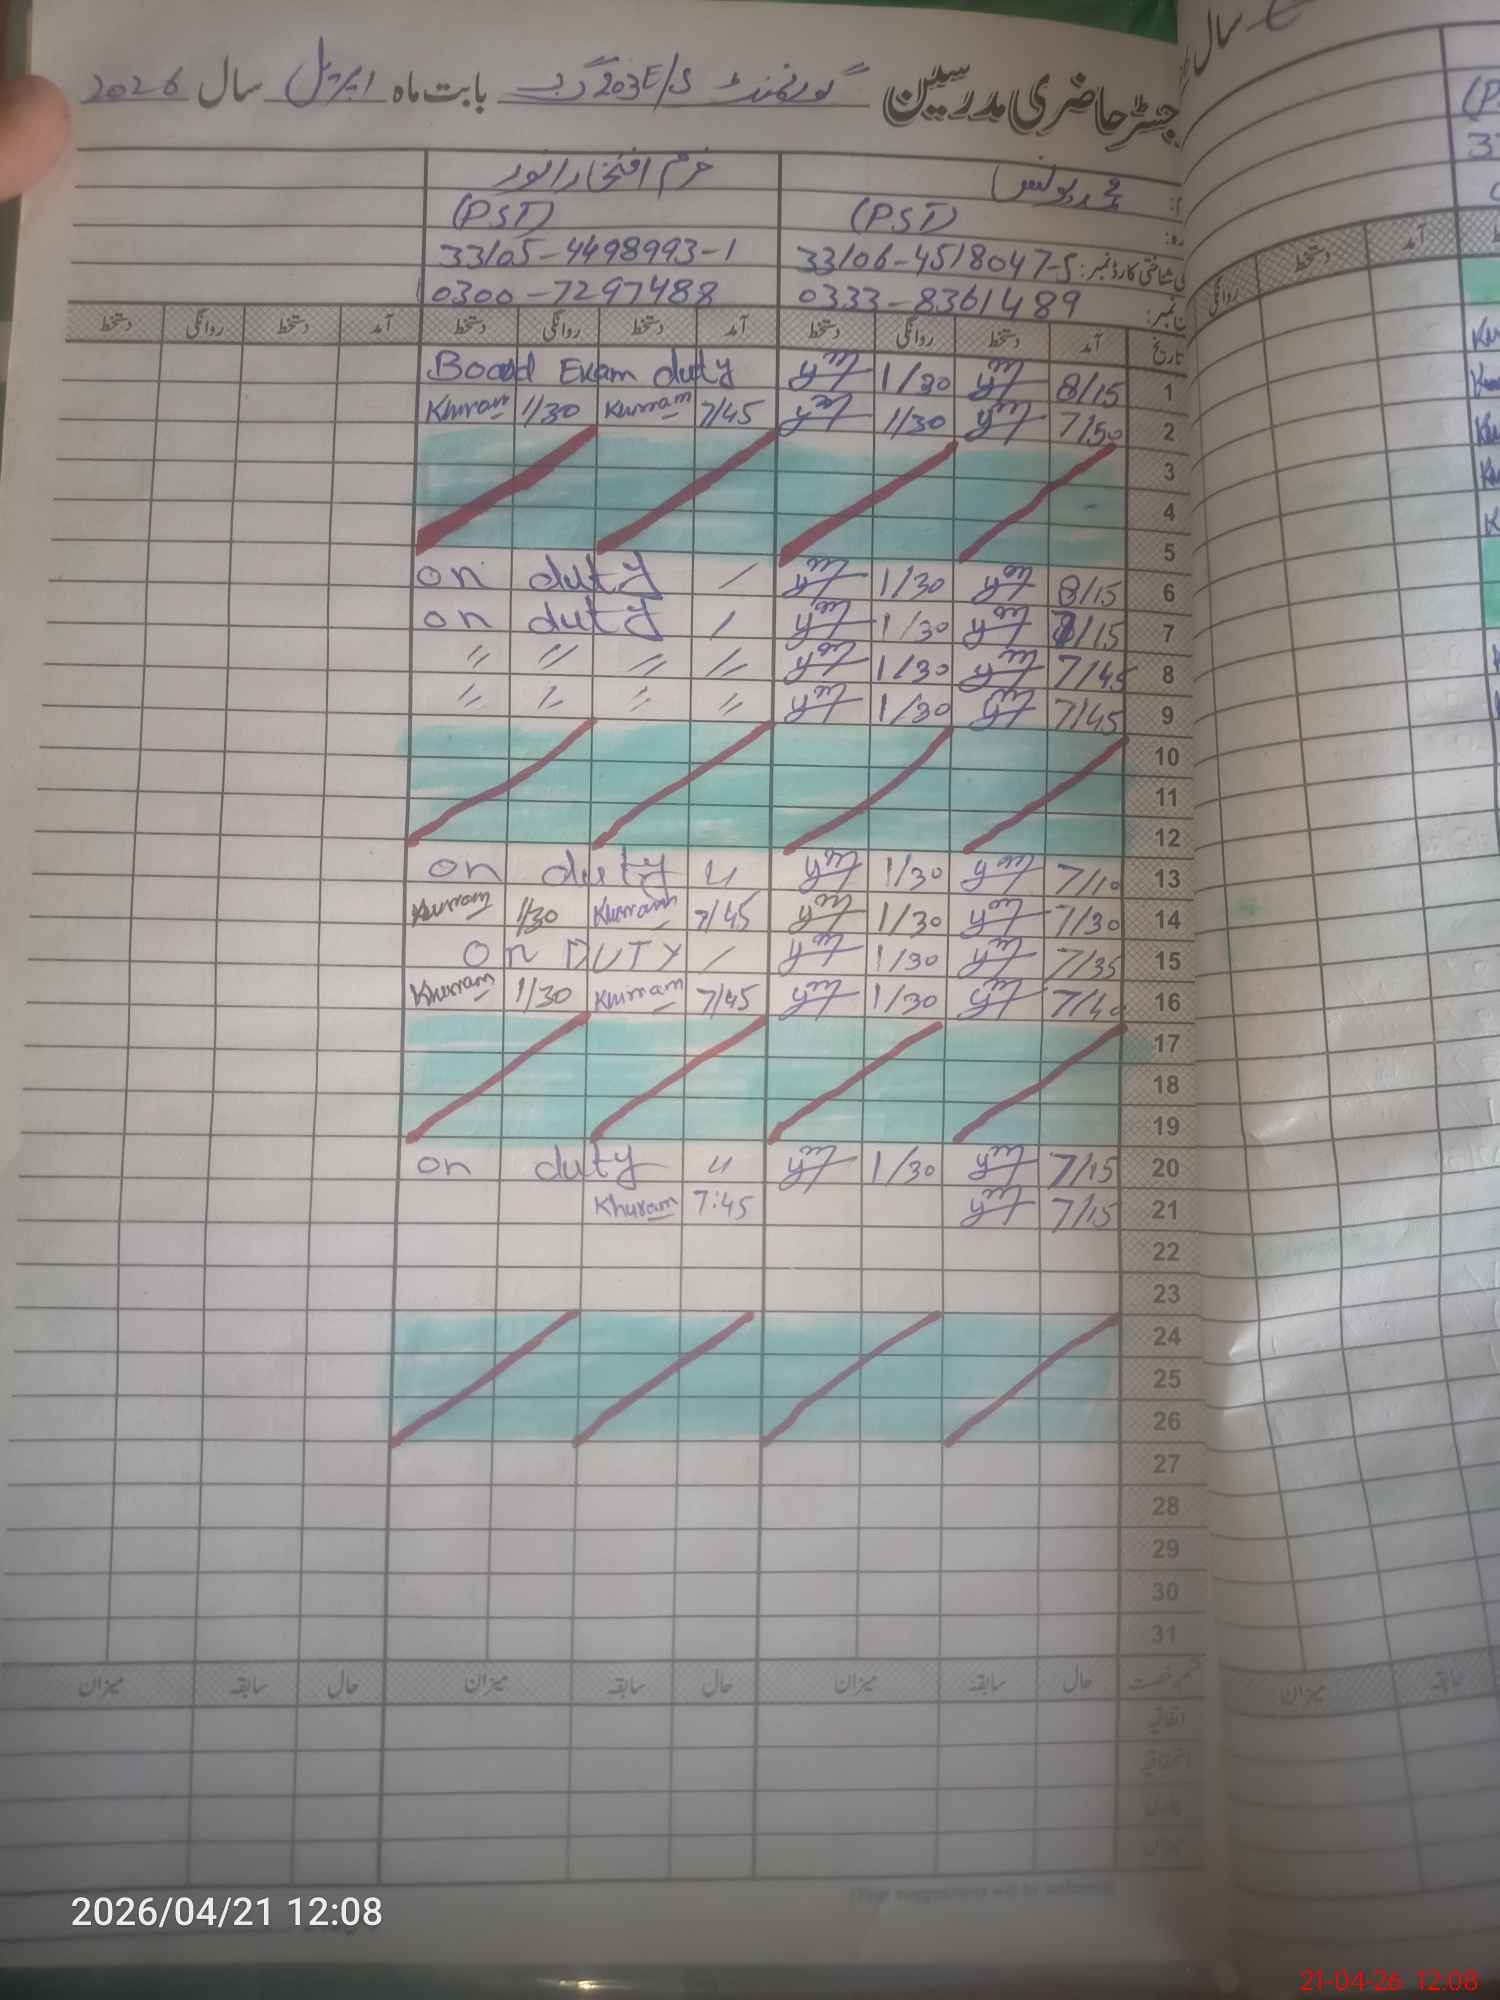 رجسٹر حاضری مدرسین گورنمنٹ 203E/S گ ب بابت ماہ اپریل سال 2026
خرم افتخار انور
(PST) (PST)
33106-4518047-5 33105-4498993-1
0333-8361489 0300-7297488
تاریخ آمد دستخط روانگی دستخط آمد دستخط روانگی دستخط آمد دستخط روانگی دستخط
1 8/15 1/30 Board Exam duty
2 7/50 1/30 7/45 Kurram 1/30 Khuram
3
4
5
6 8/15 1/30 on duty /
7 /15 1/30 on duty /
8 7/45 1/30 〃 〃 〃 〃
9 7/45 1/30 〃 〃 〃 〃
10
11
12
13 7/10 1/30 on duty 〃
14 7/30 1/30 7/45 Khurram 1/30 Khurram
15 7/35 1/30 On DUTY /
16 7/40 1/30 7/45 Khurram 1/30 Khurram
17
18
19
20 7/15 1/30 on duty 〃
21 7/15 7:45 Khuram
22
23
24
25
26
27
28
29
30
31
قسم رخصت حال سابقہ میزان حال سابقہ میزان حال سابقہ میزان
اتفاقیہ
استحقاقیہ
2026/04/21 12:08
21-04-26 12:08
سال
آمد دستخط روانگی
سابقہ میزان